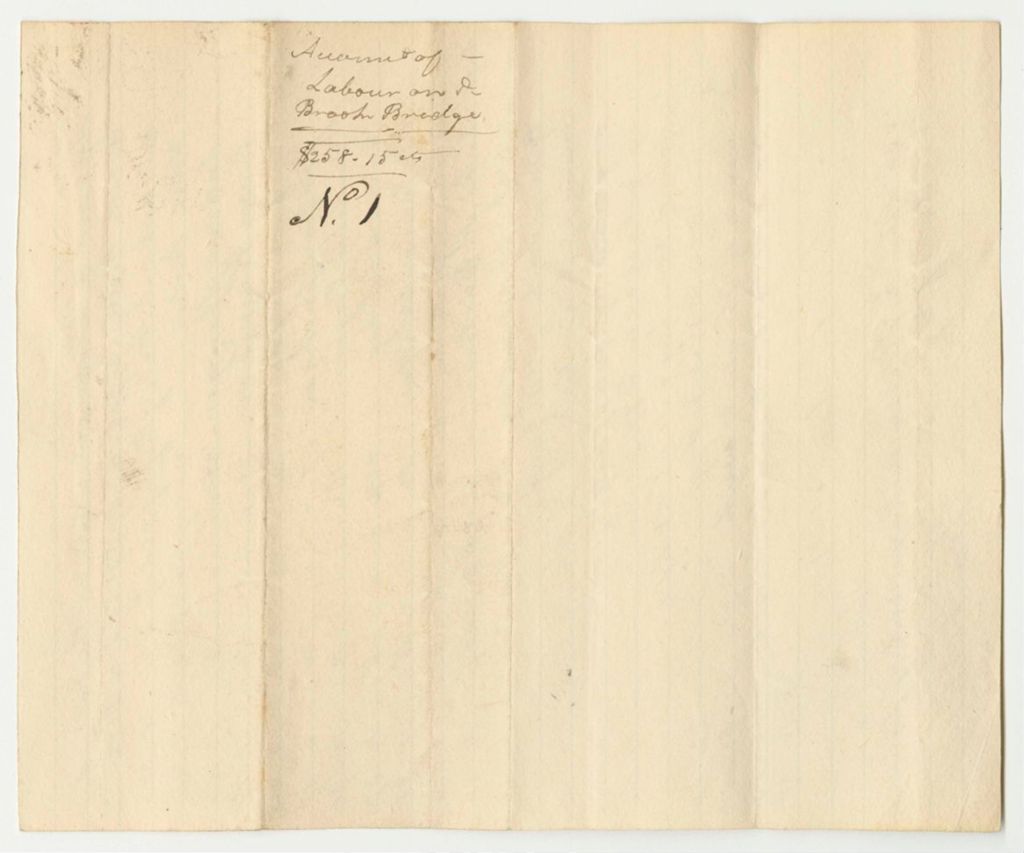 Account of —
Labour on
Brook Bridge
$258-15 cts
No. 1